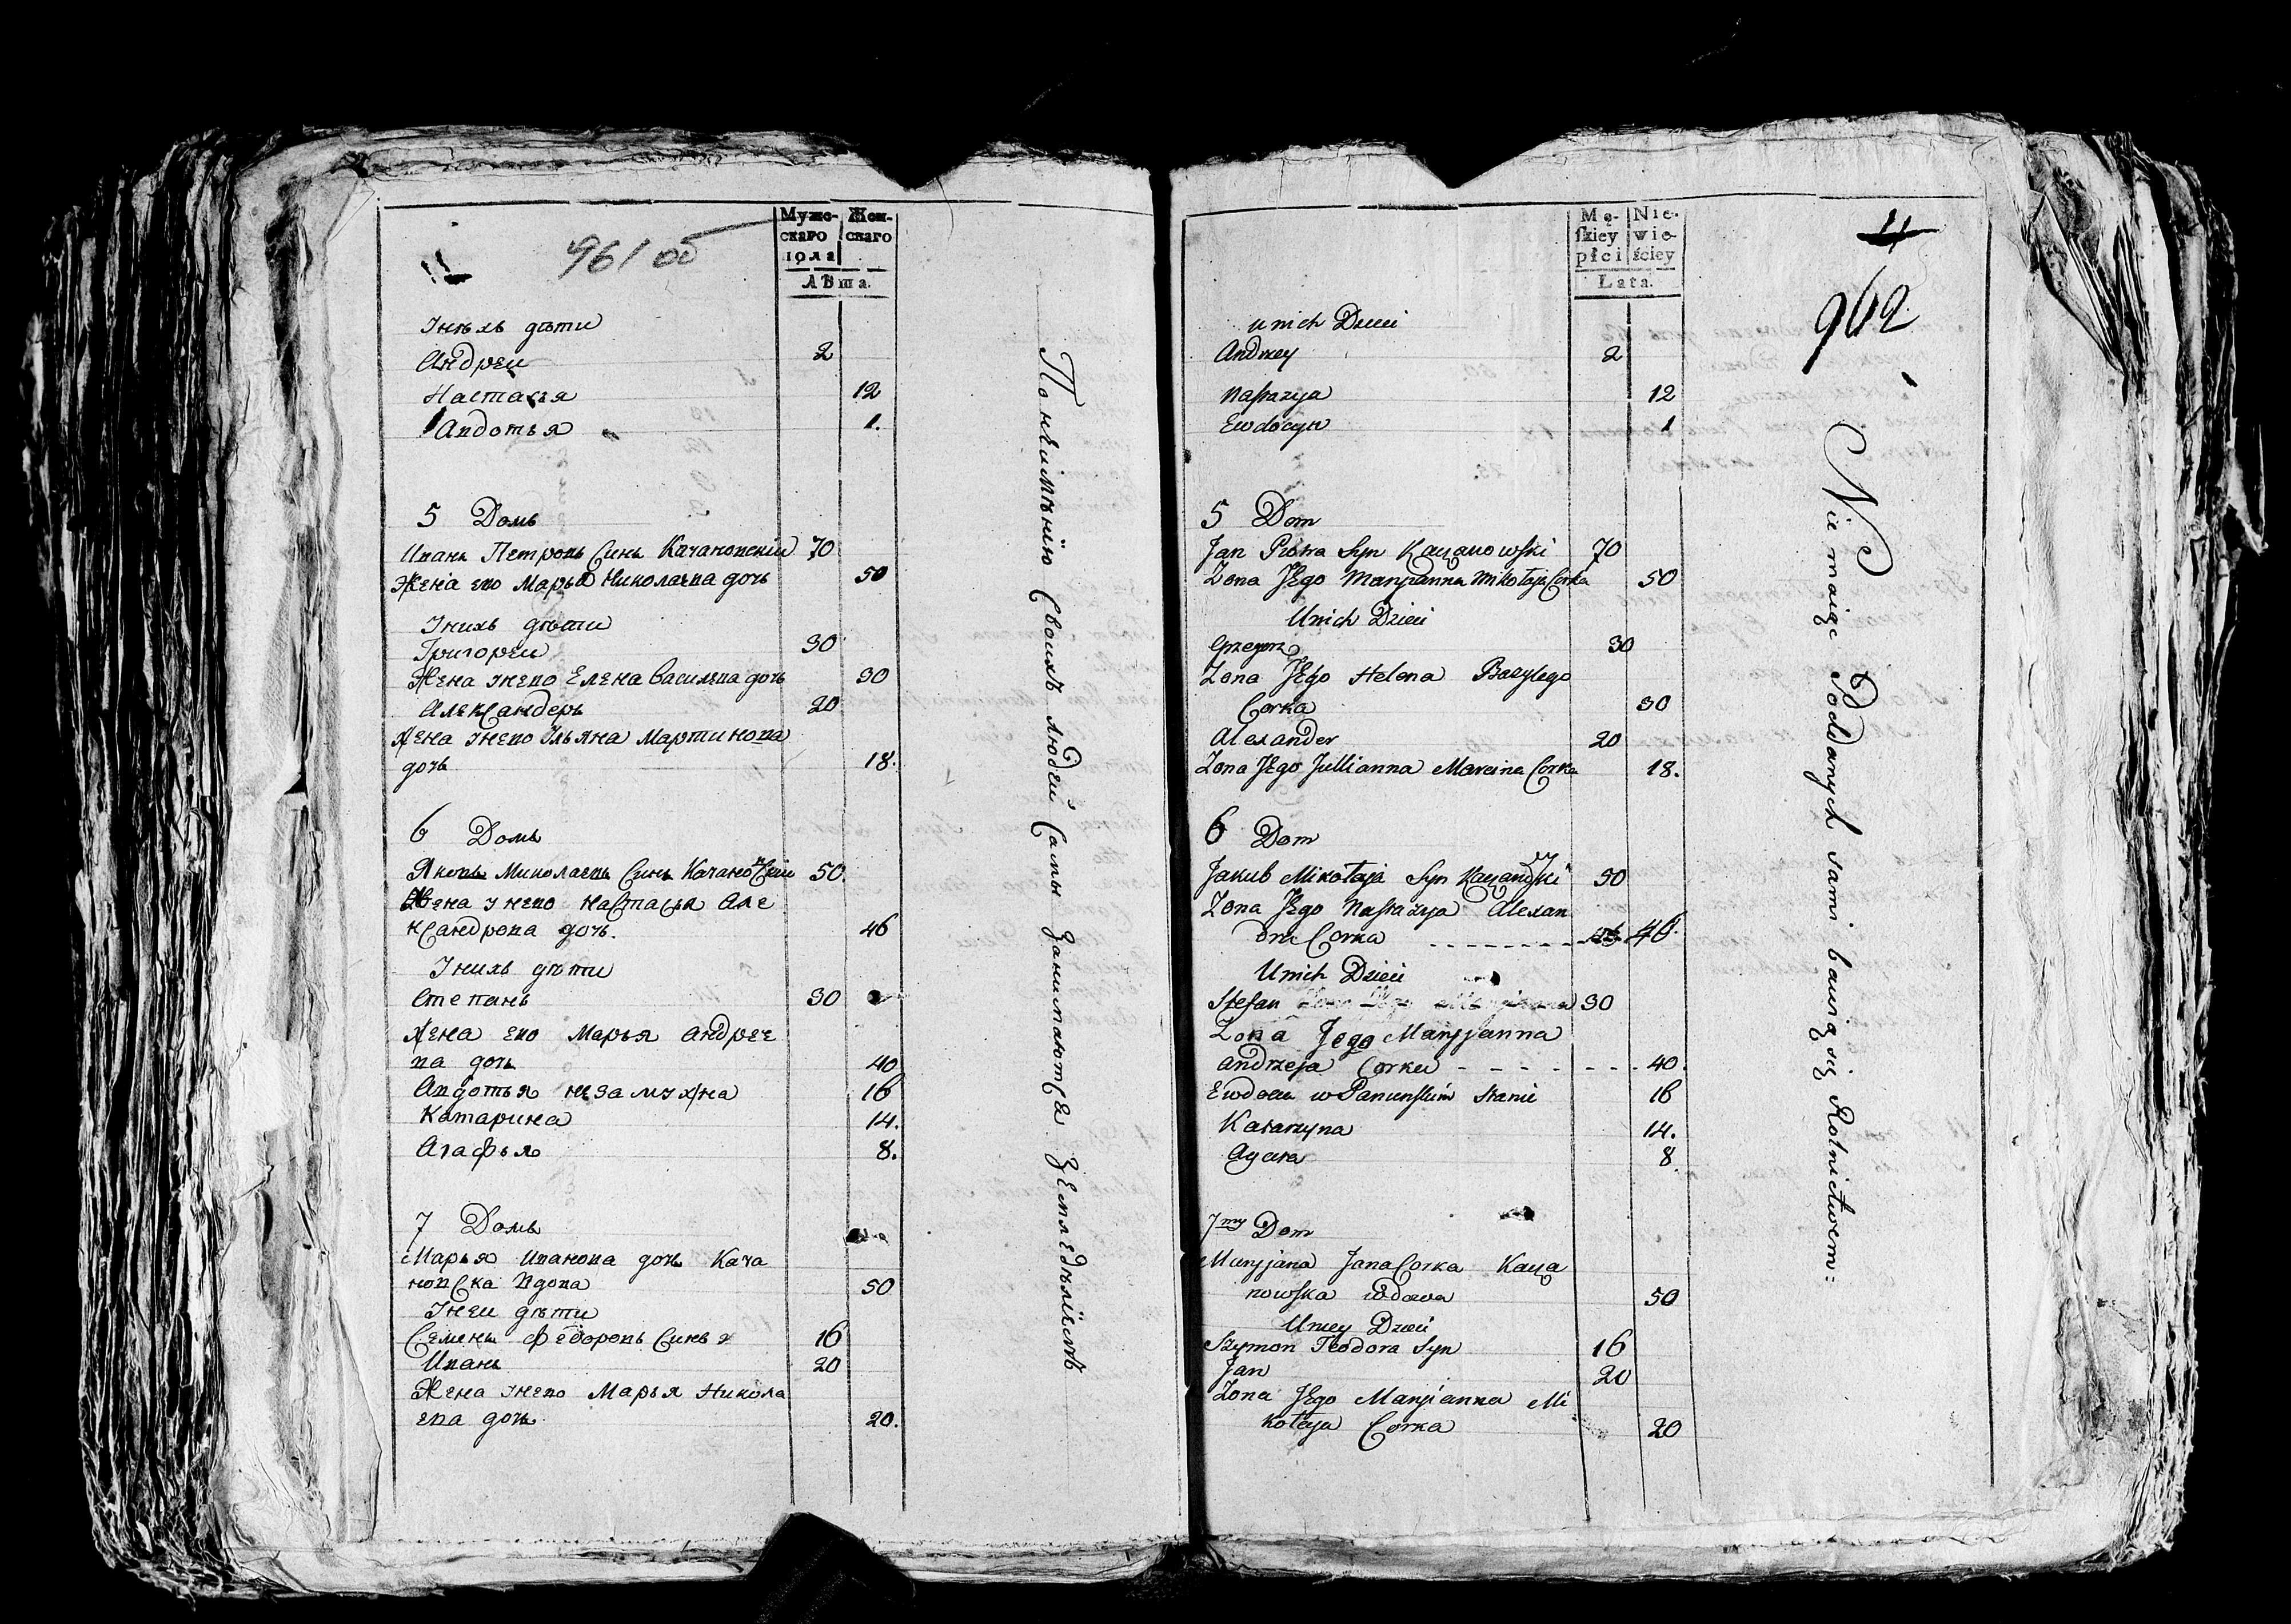 961 об
Мужс-
скаго
пола
Жен-
скаго
Лѣта.
Унихъ дѣти
Андреи 2
Настасья 12
Авдотья 1.
5 Домъ
Иванъ Петровъ Синъ Качановскіи 70
Жена его Марья Николаева дочь 50
Унихъ дѣти
Григореи 30
Жена унего Елена Василева дочь 30
Александеръ 20
Жена унего Ульяна Мартинова
дочь 18.
6 Домъ
Яковъ Миколаевъ Синъ Качановскіи 50.
Жена унего Настасья Але
ксандрова дочь. 46
Унихъ дѣти
Степанъ 30
Жена его Марья Андрее
ва дочь 40
Авдотья незамужна 16
Катарина 14.
Агафья 8.
7 Домъ
Марья Иванова дочь Кача
новска вдова 50
Унеи дѣти
Семенъ Федоровъ Синъ 16
Иванъ 20
Жена унего Марья Никола
ева дочь 20.
Понеимѣнію Своихъ людеи Сами Занимаютса Земледѣліемъ
Mę-
skiey
płci
Nie-
wie-
ściey
Lata.
11
962
unich Dzieci
Andrzey 2
Nastazya 12
Ewdocya 1
5 Dom
Jan Piotra Syn Kaczanowski 70
Zona Jego Maryianna Mikołaja Corka 50
Unich Dzieci
Grzegorz 30
Zona Jego Helena Bazylego
Corka 30
Alexander 20
Zona Jego Jullianna Marcina Corka 18.
6 Dom
Jakub Mikołaja Syn Kaczanowski 50
Zona Jego Nastazya Alexan
dra Corka 46.
Unich Dzieci
Stefan 30
Zona Jego Maryjanna
Andrzeja Corka 40.
Ewdocia w Panienskim Stanie 16
Katarzyna 14.
Agata 8
7my Dom
Maryjana Jana Corka Kacza
nowska wdowa 50
Uniey Dzieci
Szymon Teodora Syn 16
Jan 20
Zona Jego Maryianna Mi
kołaja Corka 20
Nie maiąc Poddanych sami bawią się Rolnictwem: